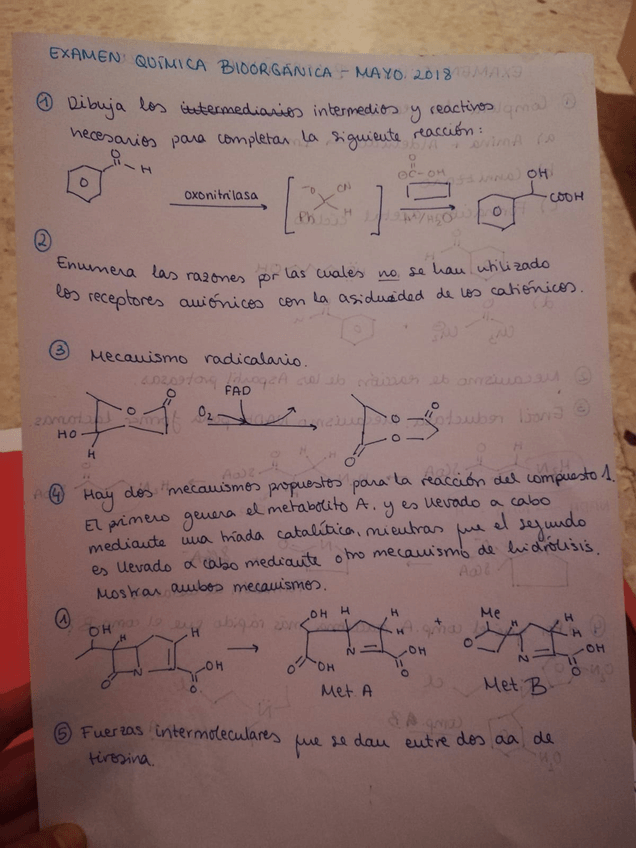 EXAMEN QUÍMICA BIOORGÁNICA - MAYO 2018
① Dibuja los intermediarios intermedios y reactivos
necesarios para completar la siguiente reacción:
O
H
oxonitrilasa
⁻O CN
Ph H
O
C-OH
H⁺/H2O
OH
COOH
②
Enumera las razones por las cuales no se han utilizado
los receptores aniónicos con la asiduidad de los catiónicos.
③ Mecanismo radicalario.
O
O
HO
H
O2
FAD
O
O
O
O
④ Hay dos mecanismos propuestos para la reacción del compuesto 1.
El primero genera el metabolito A. y es llevado a cabo
mediante una tríada catalítica, mientras que el segundo
es llevado a cabo mediante otro mecanismo de hidrólisis.
Mostrar ambos mecanismos.
①
OH H H
O N O OH
OH H H H
O OH N O OH
Met A
+
Me H H H
O N O OH
Met B
⑤ Fuerzas intermoleculares que se dan entre dos aa de
tirosina.